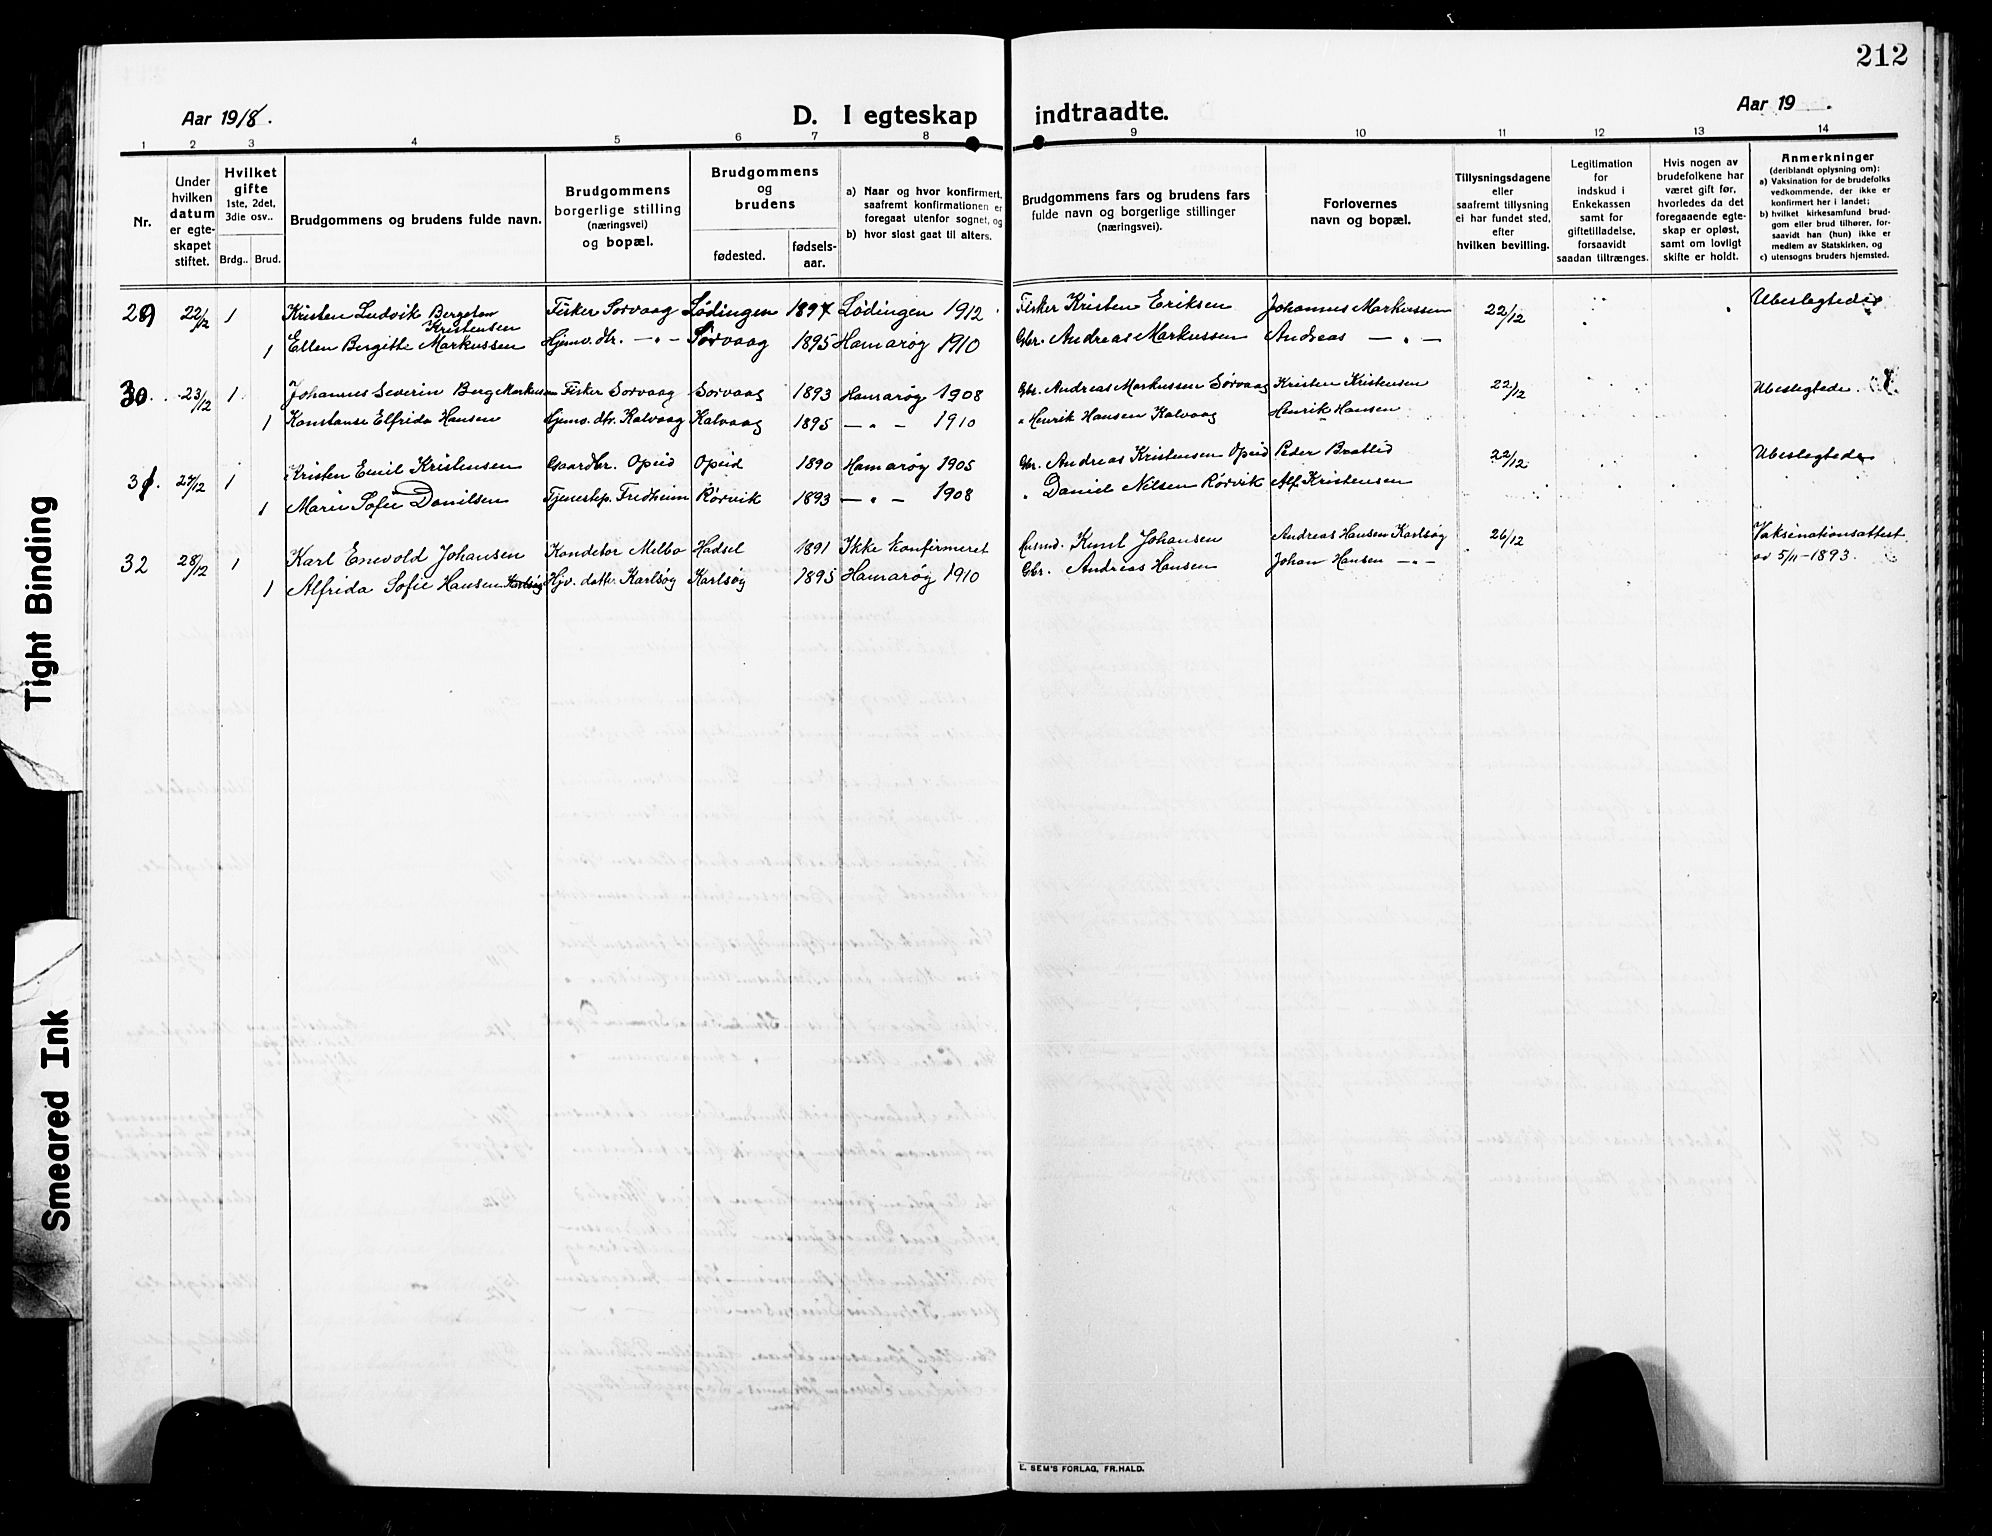 212
Aar 1918.
D. I egteskap indtraadte.
Aar 19 .
1 2 3 4 5 6 7 8 9 10 11 12 13 14
Nr.
Under hvilken datum er egteskapet stiftet.
Hvilket gifte 1ste, 2det, 3die osv..
Brdg.. Brud.
Brudgommens og brudens fulde navn.
Brudgommens borgerlige stilling (næringsvei) og bopæl.
Brudgommens og brudens
fødested.
fødsels-aar.
a) Naar og hvor konfirmert, saafremt konfirmationen er foregaat utenfor sognet, og
b) hvor sidst gaat til alters.
Brudgommens fars og brudens fars fulde navn og borgerlige stillinger (næringsvei).
Forlovernes navn og bopæl.
Tillysningsdagene eller saafremt tillysning ei har fundet sted, efter hvilken bevilling.
Legitimation for indskud i Enkekassen samt for giftetilladelse, forsaavidt saadan tiltrænges.
Hvis nogen av brudefolkene har været gift før, hvorledes da det foregaaende egteskap er opløst, samt om lovligt skifte er holdt.
Anmerkninger (deriblandt oplysning om):
a) Vaksination for de brudefolks vedkommende, der ikke er konfirmert her i landet;
b) hvilket kirkesamfund brudgom eller brud tilhører, forsaavidt han (hun) ikke er medlem av Statskirken, og
c) utensogns bruders hjemsted.
29 22/12 1 Kristen Ludvik Bergeton Kristensen Fisker Sorvaag Lødingen 1897 Lødingen 1912 Fisker Kristen Eriksen Johannes Markussen 22/12 Ubeslegtede
1 Ellen Bergitte Markussen Hjemv. dtr. — „ — Sørvaag 1895 Hamarøg 1910 Gbr. Andreas Markussen Andreas — „ —
30. 23/12 1 Johannes Severin Berg Markussen Fisker Sorvaag Sorvaag 1893 Hamarøg 1908 Gbr. Andreas Markussen Sørvaag Kristen Kristensen 22/12 Ubeslegtede.
1 Konstanse Elfrida Hansen Hjemv. dtr. Kalvaag Kalvaag 1895 — „ — 1910 „ Henrik Hansen Kalvaag Henrik Hansen
31. 27/12 1 Kristen Emil Kristensen Gaardbr. Opeid Opeid 1890 Hamarøg 1905 Gbr. Andreas Kristensen Opeid Peder Braatlid 22/12 Ubeslegtede
1 Marie Sofie Danilsen Tjenestep. Fredheim Rørvik 1893 — „ — 1908 „ Daniel Nilsen Rørvik Alf Kristensen
32 28/12 1 Karl Enevold Johansen Kondetor Melbo Hadsel 1891 Ikke Konfirmeret Knut Johansen Andreas Hansen Karlsøg 26/12 Vaksinationsattest
1 Alfrida Sofie Hansen Karlsøg Hjv. dattr. Karlsøg Karlsøg 1895 Hamarøg 1910 Gbr. Andreas Hansen Johan Hansen — „ — av 5/11 - 1893.
Tight Binding
Smeared Ink
E. SEM'S FORLAG, FR.HALD.